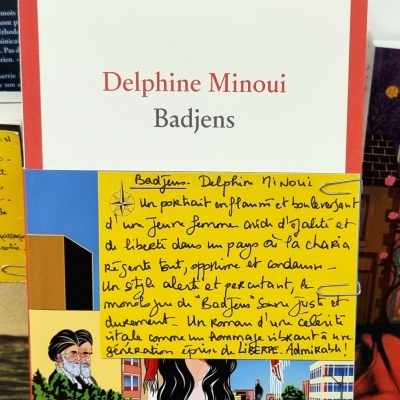 Delphine Minoui
Badjens
Badjens. Delphine MiNOUi
Un portrait enflammé et bouleversant
d'une jeune femme avide d'égalité et
de liberté dans un pays où la charia
régente tout, opprime et condamne -
Un style alerte et percutant, le
monologue de "Badjens" sonne juste et
durement - Un roman d'une célérité
vitale comme un hommage vibrant à une
génération éprise de LIBERTE. Admirable!